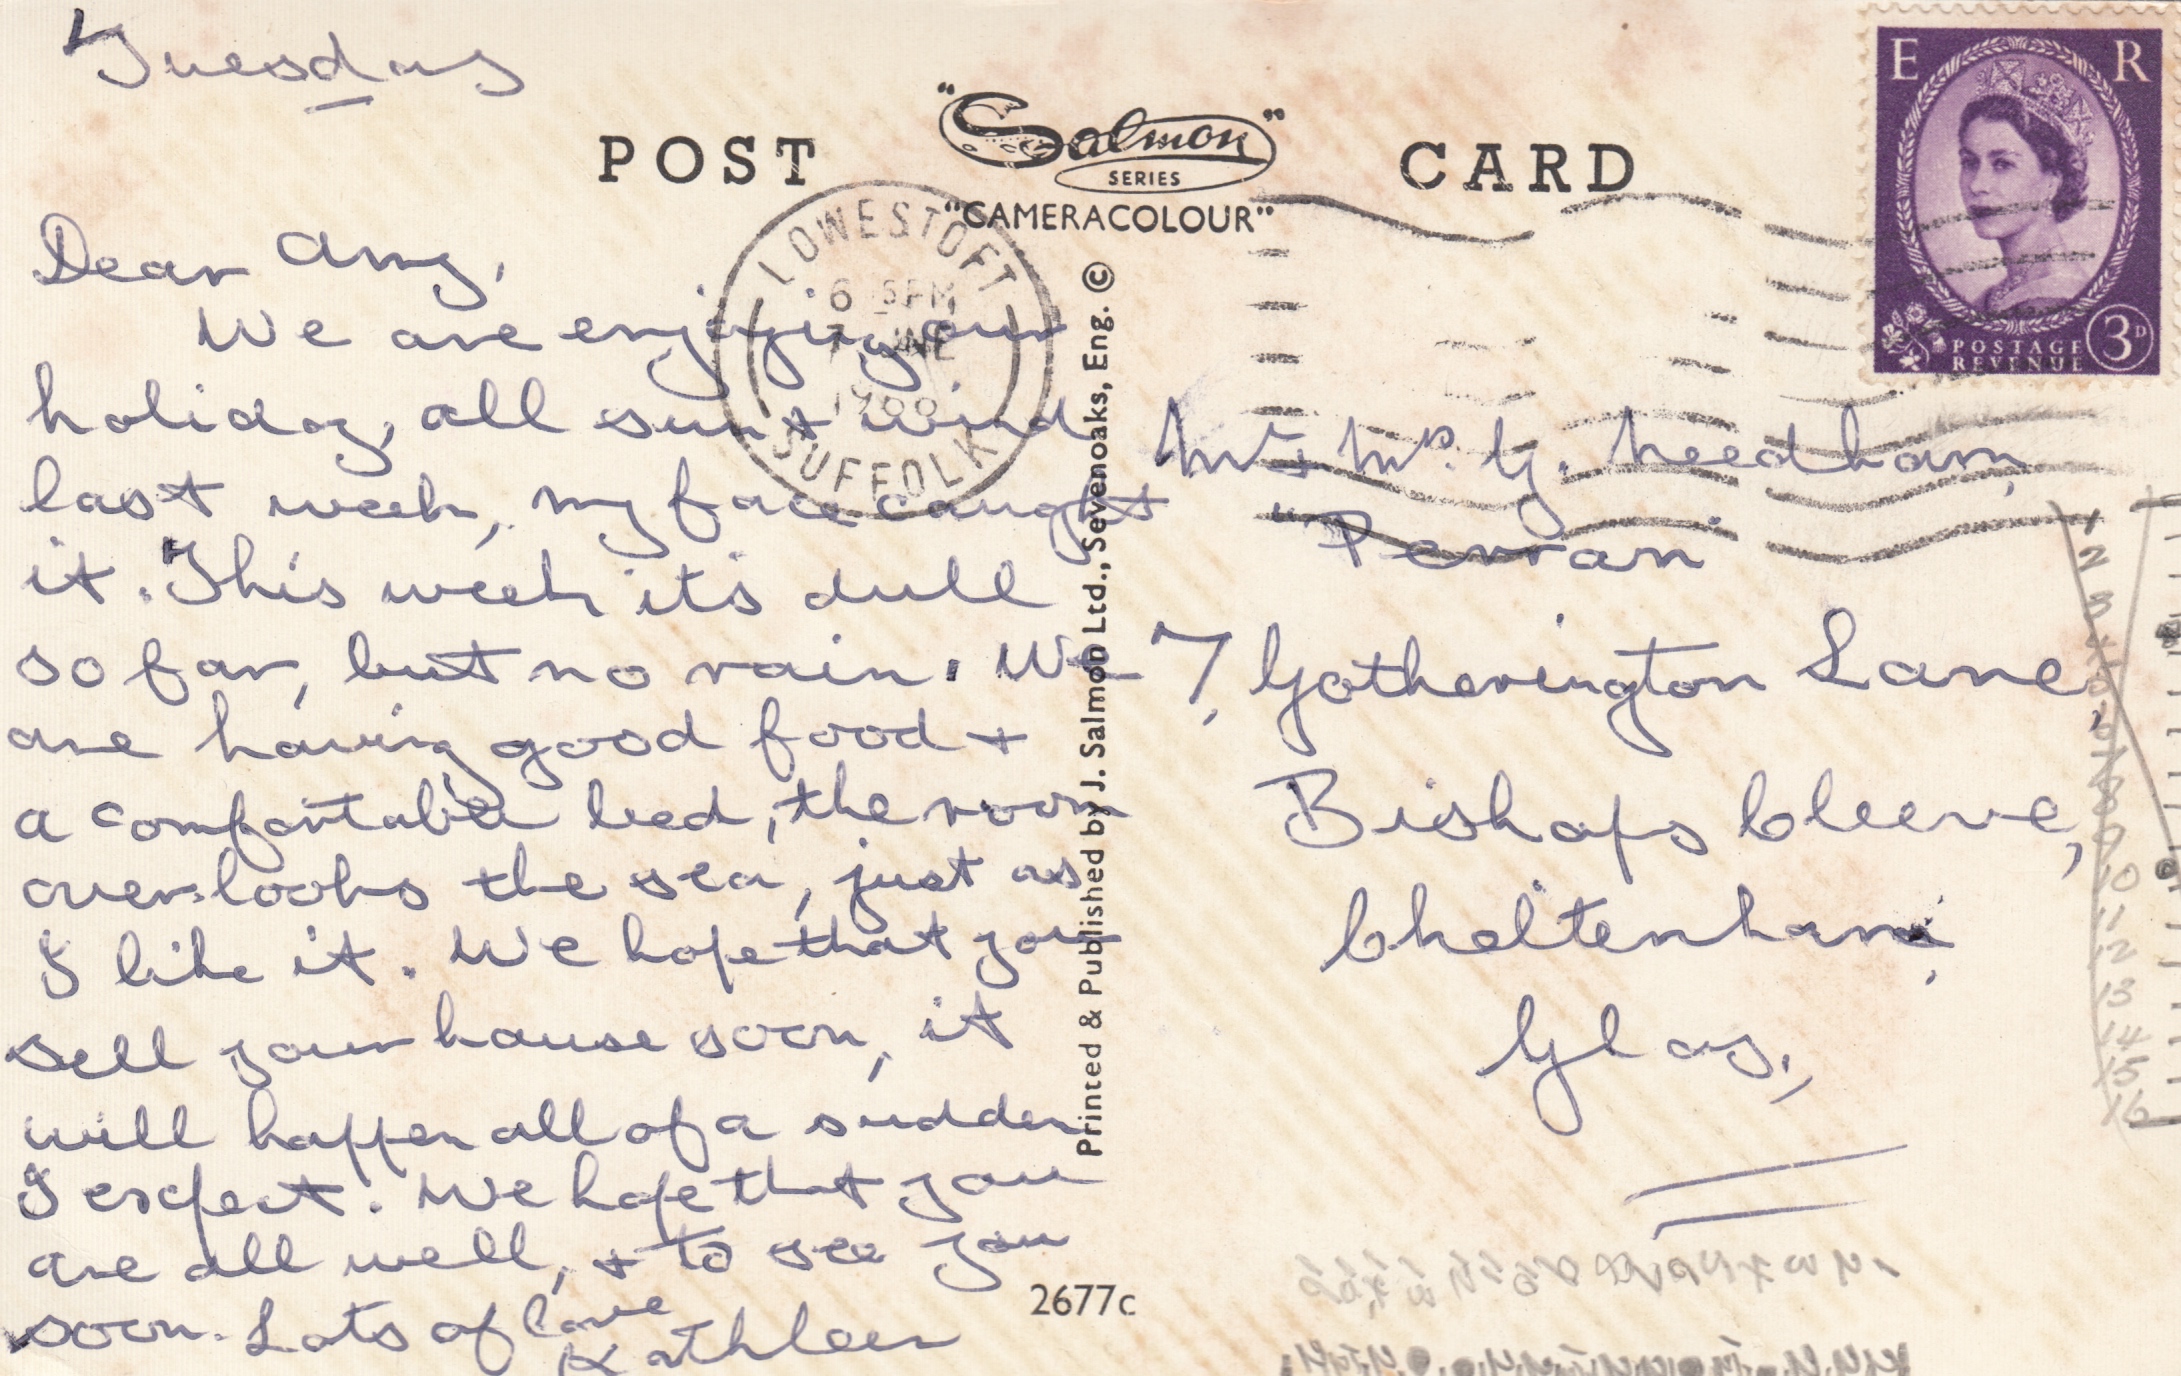 Tuesday
POST CARD
"Salmon"
SERIES
"CAMERACOLOUR"
E R
POSTAGE
REVENUE
3D
LOWESTOFT
SUFFOLK
6 15PM
JUNE
Dear Amy,
We are enjoying our
holiday, all sun + wind
last week, my face caught
it. This week it's dull
so far, but no rain. We
are having good food +
a comfortable bed, the room
overlooks the sea, just as
I like it. We hope that you
sell your house soon, it
will happen all of a sudden
I expect. We hope that you
are all well, + to see you
soon. Lots of love
Kathleen
Printed & Published by J. Salmon Ltd., Sevenoaks, Eng. ©
2677c
Mr + Mrs. G. Needham,
"Perran
7, Gotherington Lane,
Bishops Cleeve,
Cheltenham,
Glos.,
1
2
3
4
5
6
7
8
9
10
11
12
13
14
15
16